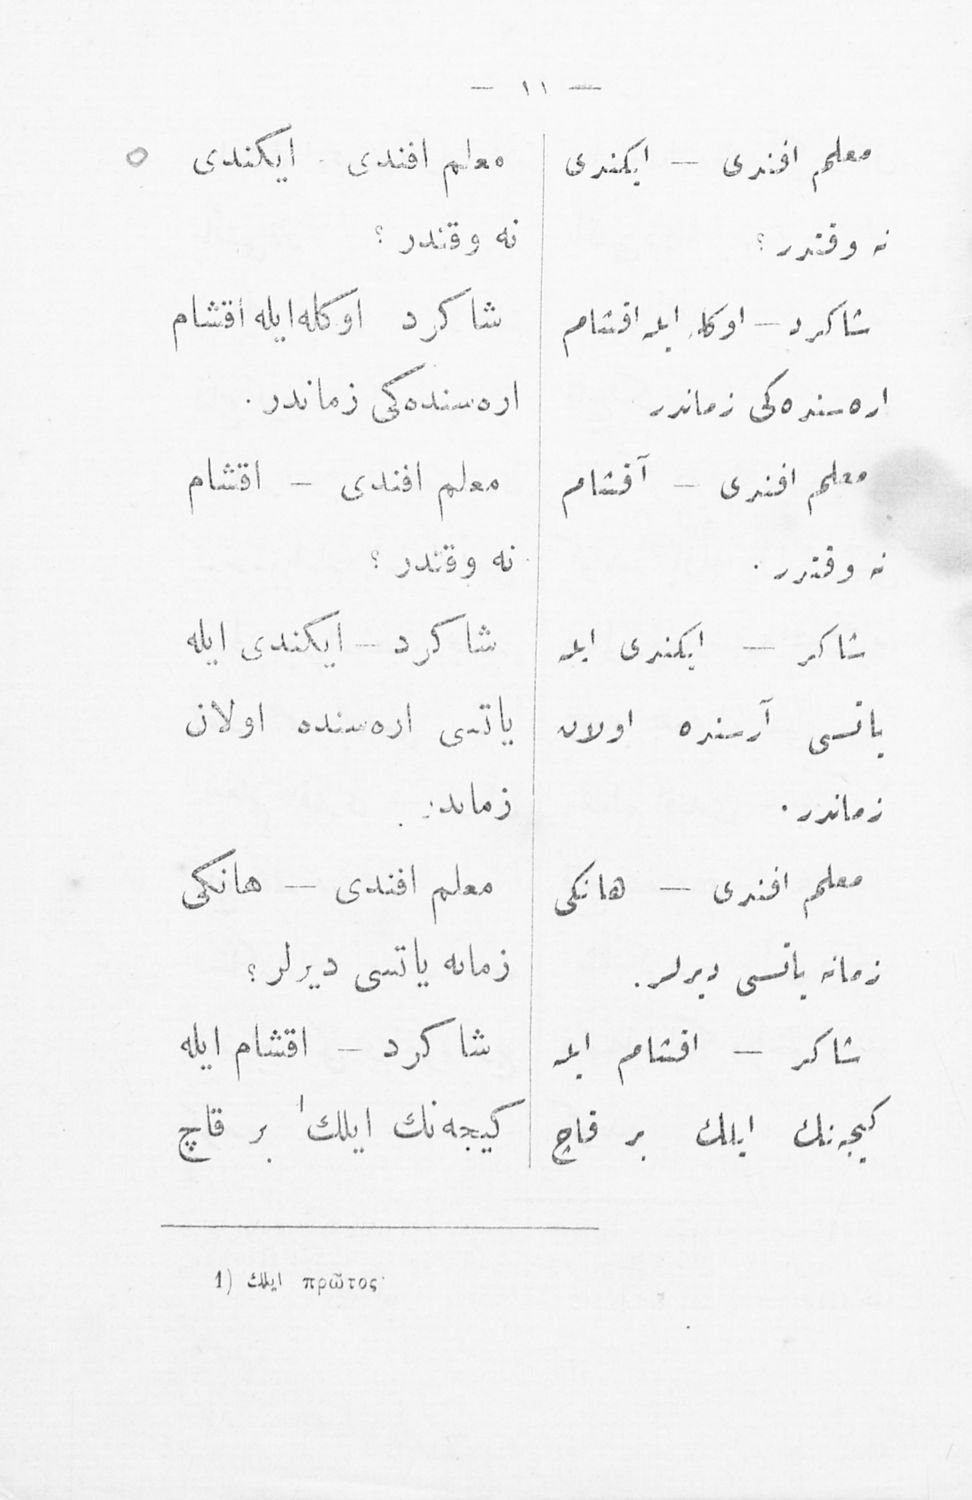 — ١١ —
معلم افندی — ایکندی
نه وقتدر ؟
شاکرد — اوکله ایله اقشام
اره‌سنده‌کی زماندر
معلم افندی — آقشام
نه وقتدر .
شاکر — ایکندی ایله
یاتسی آرسنده اولان
زماندر .
معلم افندی — هانکی
زمانه یاتسی دیرلر .
شاکر — اقشام ایله
کیجه‌نك ایلك بر قاچ
معلم افندی - ایکندی
نه وقتدر ؟
شاکرد اوکله ایله اقشام
اره‌سنده‌کی زماندر .
معلم افندی — اقشام
نه وقتدر ؟
شاکرد — ایکندی ایله
یاتسی اره‌سنده اولان
زماندر .
معلم افندی — هانکی
زمانه یاتسی دیرلر ؟
شاکرد — اقشام ایله
کیجه‌نك ایلك¹ بر قاچ
1) ایلك πρῶτος